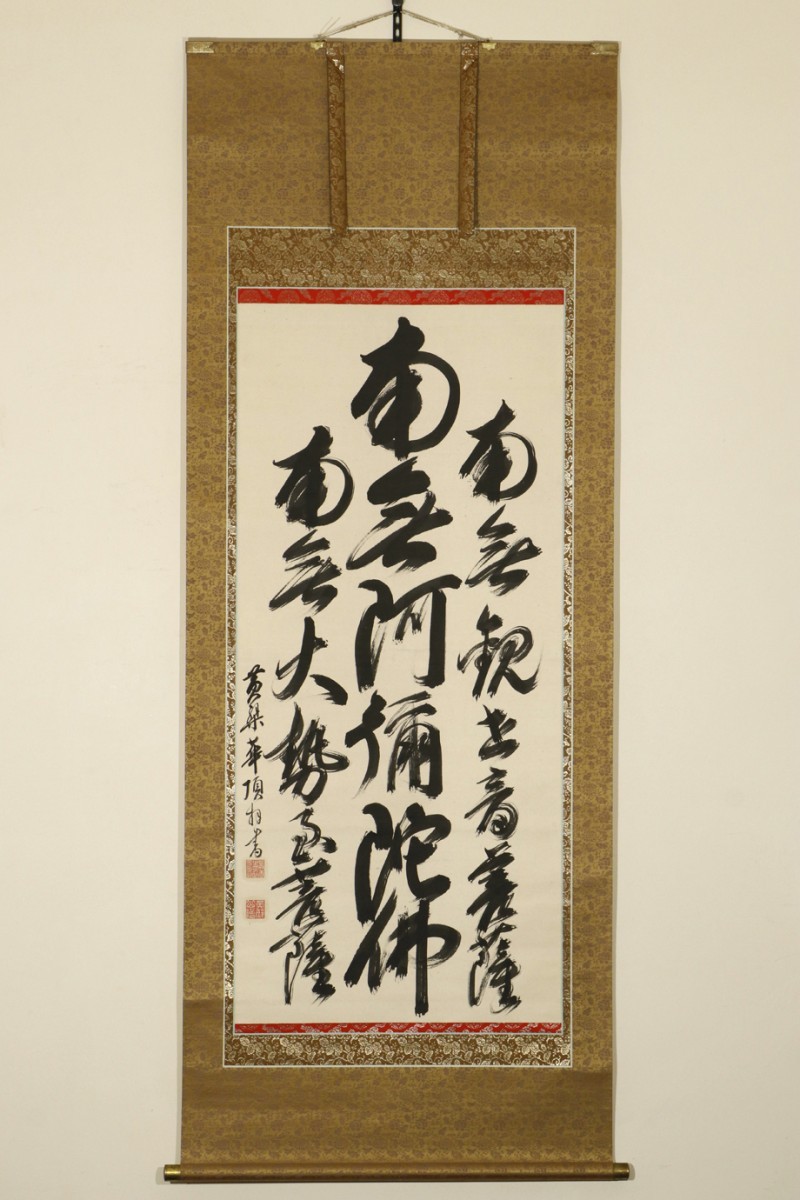 南無観世音菩薩
南無阿彌陀佛
南無大勢至菩薩
黄檗華頂 書